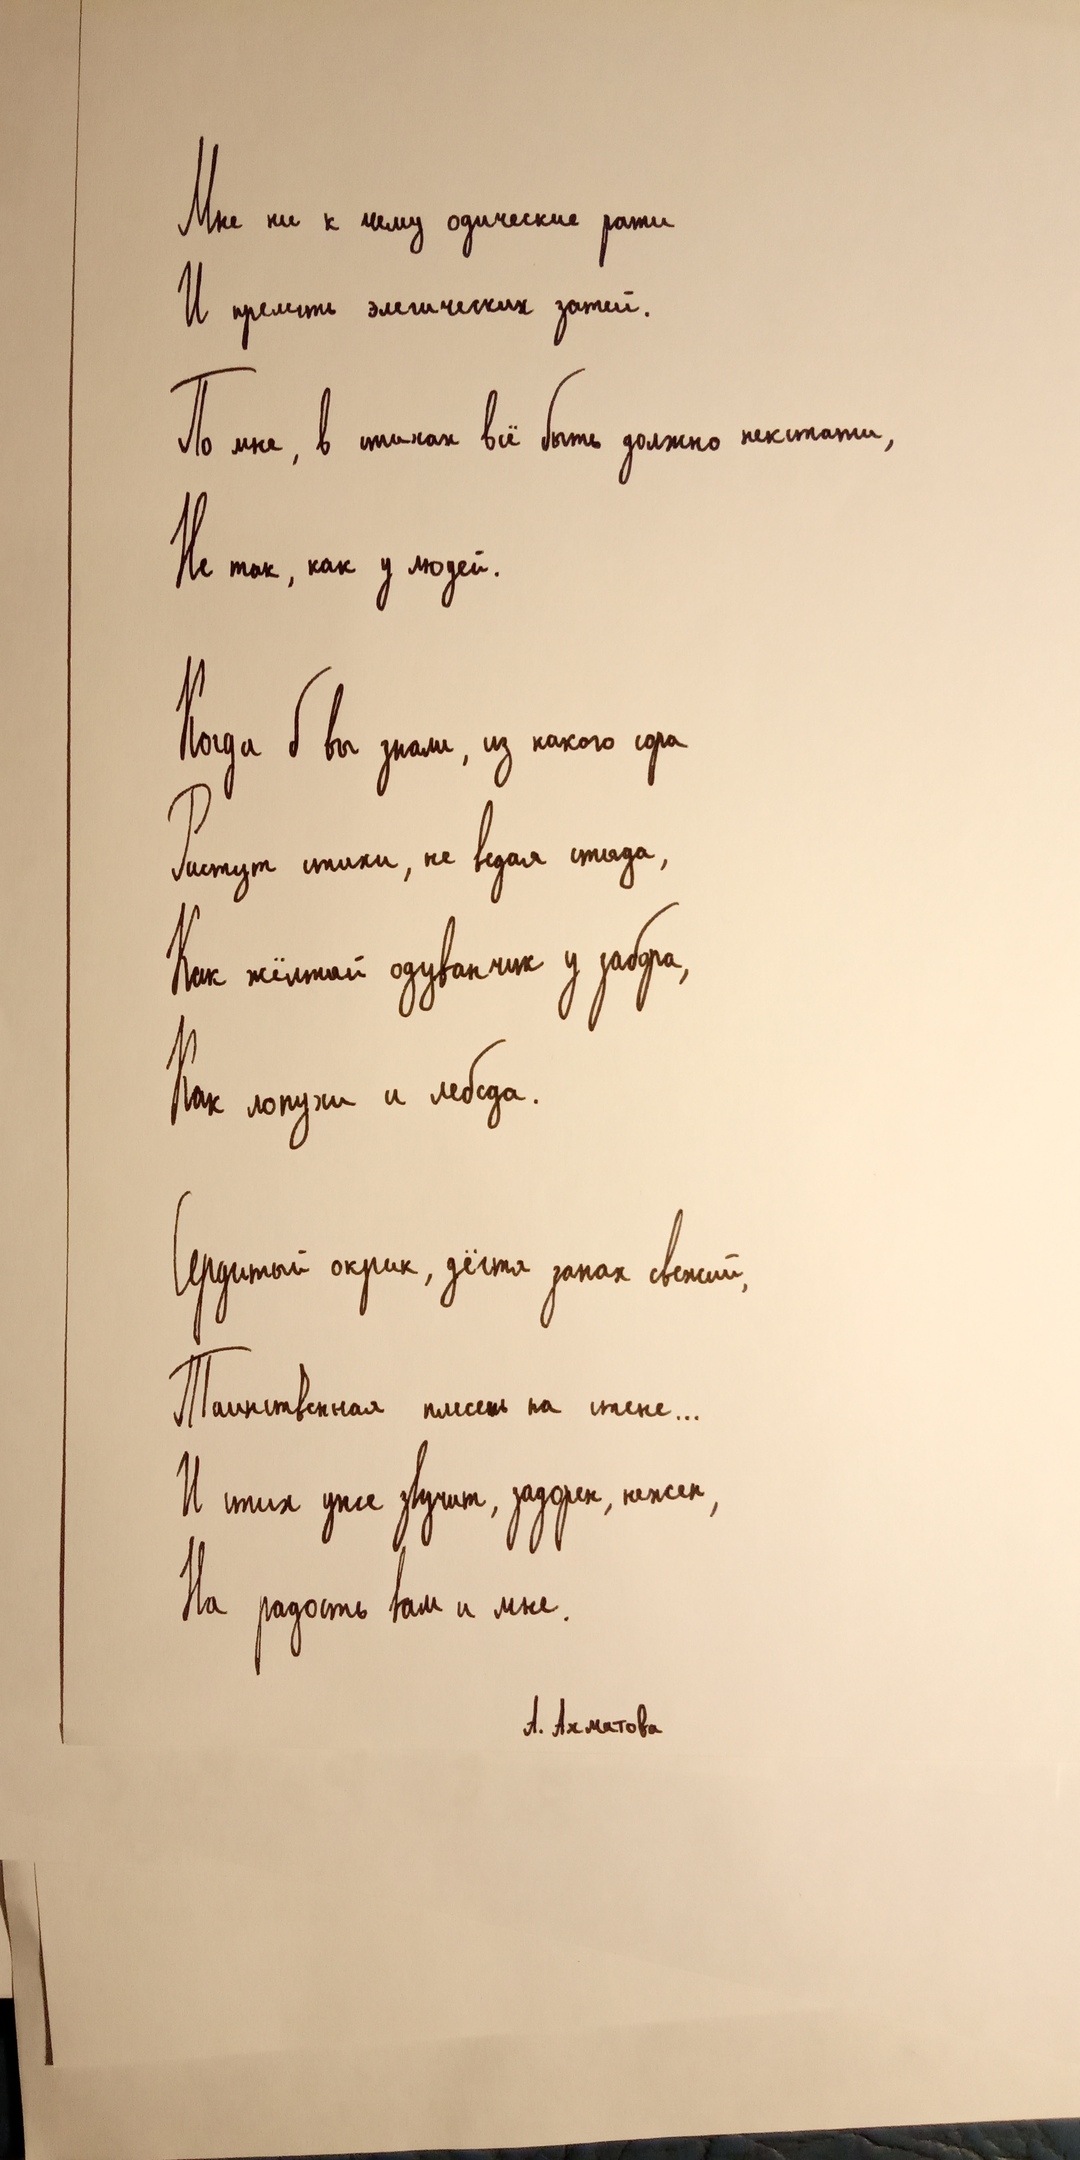 Мне ни к чему одические рати
И прелесть элегических затей.
По мне, в стихах всё быть должно некстати,
Не так, как у людей.
Когда б вы знали, из какого сора
Растут стихи, не ведая стыда,
Как жёлтый одуванчик у забора,
Как лопухи и лебеда.
Сердитый окрик, дёгтя запах свежий,
Таинственная плесень на стене...
И стих уже звучит, задорен, нежен,
На радость вам и мне.
А. Ахматова